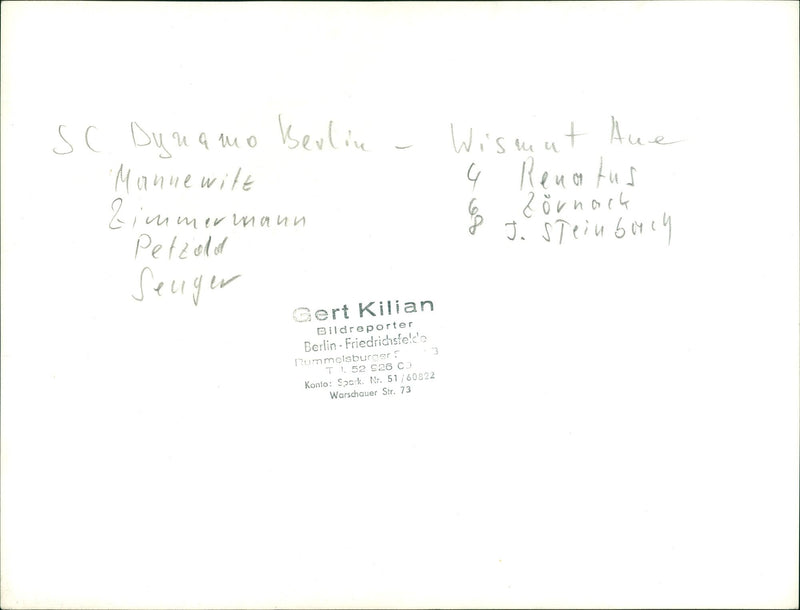 SC Dynamo Berlin - Wismut Aue
Mannewitz
Zimmermann
Petzold
Senger
4 Renatus
6 Zörnack
8 J. Steinbach
Gert Kilian
Bildreporter
Berlin-Friedrichsfelde
Rummelsburger
52 926
Konto: Spark. Nr. 51/60822
Warschauer Str. 73